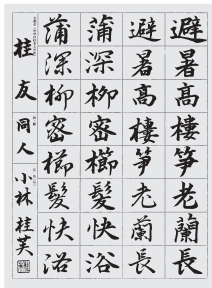 避暑高樓笋老蘭長
避暑高樓笋老蘭長
蒲深柳密櫛髮快浴
蒲深柳密櫛髮快浴
桂友同人
小林桂芙